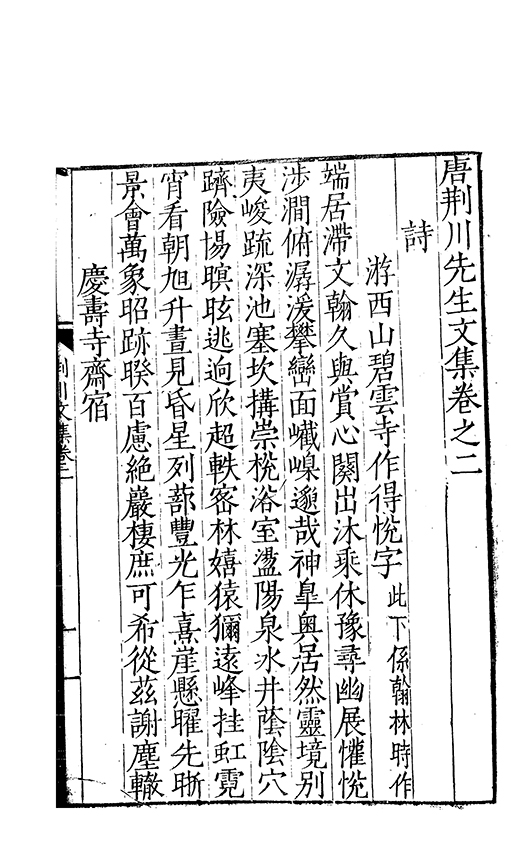 唐荆川先生文集卷之二
詩
游西山碧雲寺作得悅字 此下係翰林時作
端居滯文翰久與賞心闋出沐乘休豫尋幽展懽悅
涉澗俯潺湲攀巒面巀嵲邈哉神皐奧居然靈境別
夷峻疏深池塞坎搆崇梲浴室盪陽泉氷井蔭陰穴
躋險惕瞑眩逃逈欣超軼密林嬉猿獮遠峰挂虹霓
宵看朝旭升晝見昏星列蔀豐光乍熹崖懸曜先晣
景會萬象昭跡睽百慮絶巖棲庶可希從茲謝塵轍
慶壽寺齋宿
荆川文集卷二
一